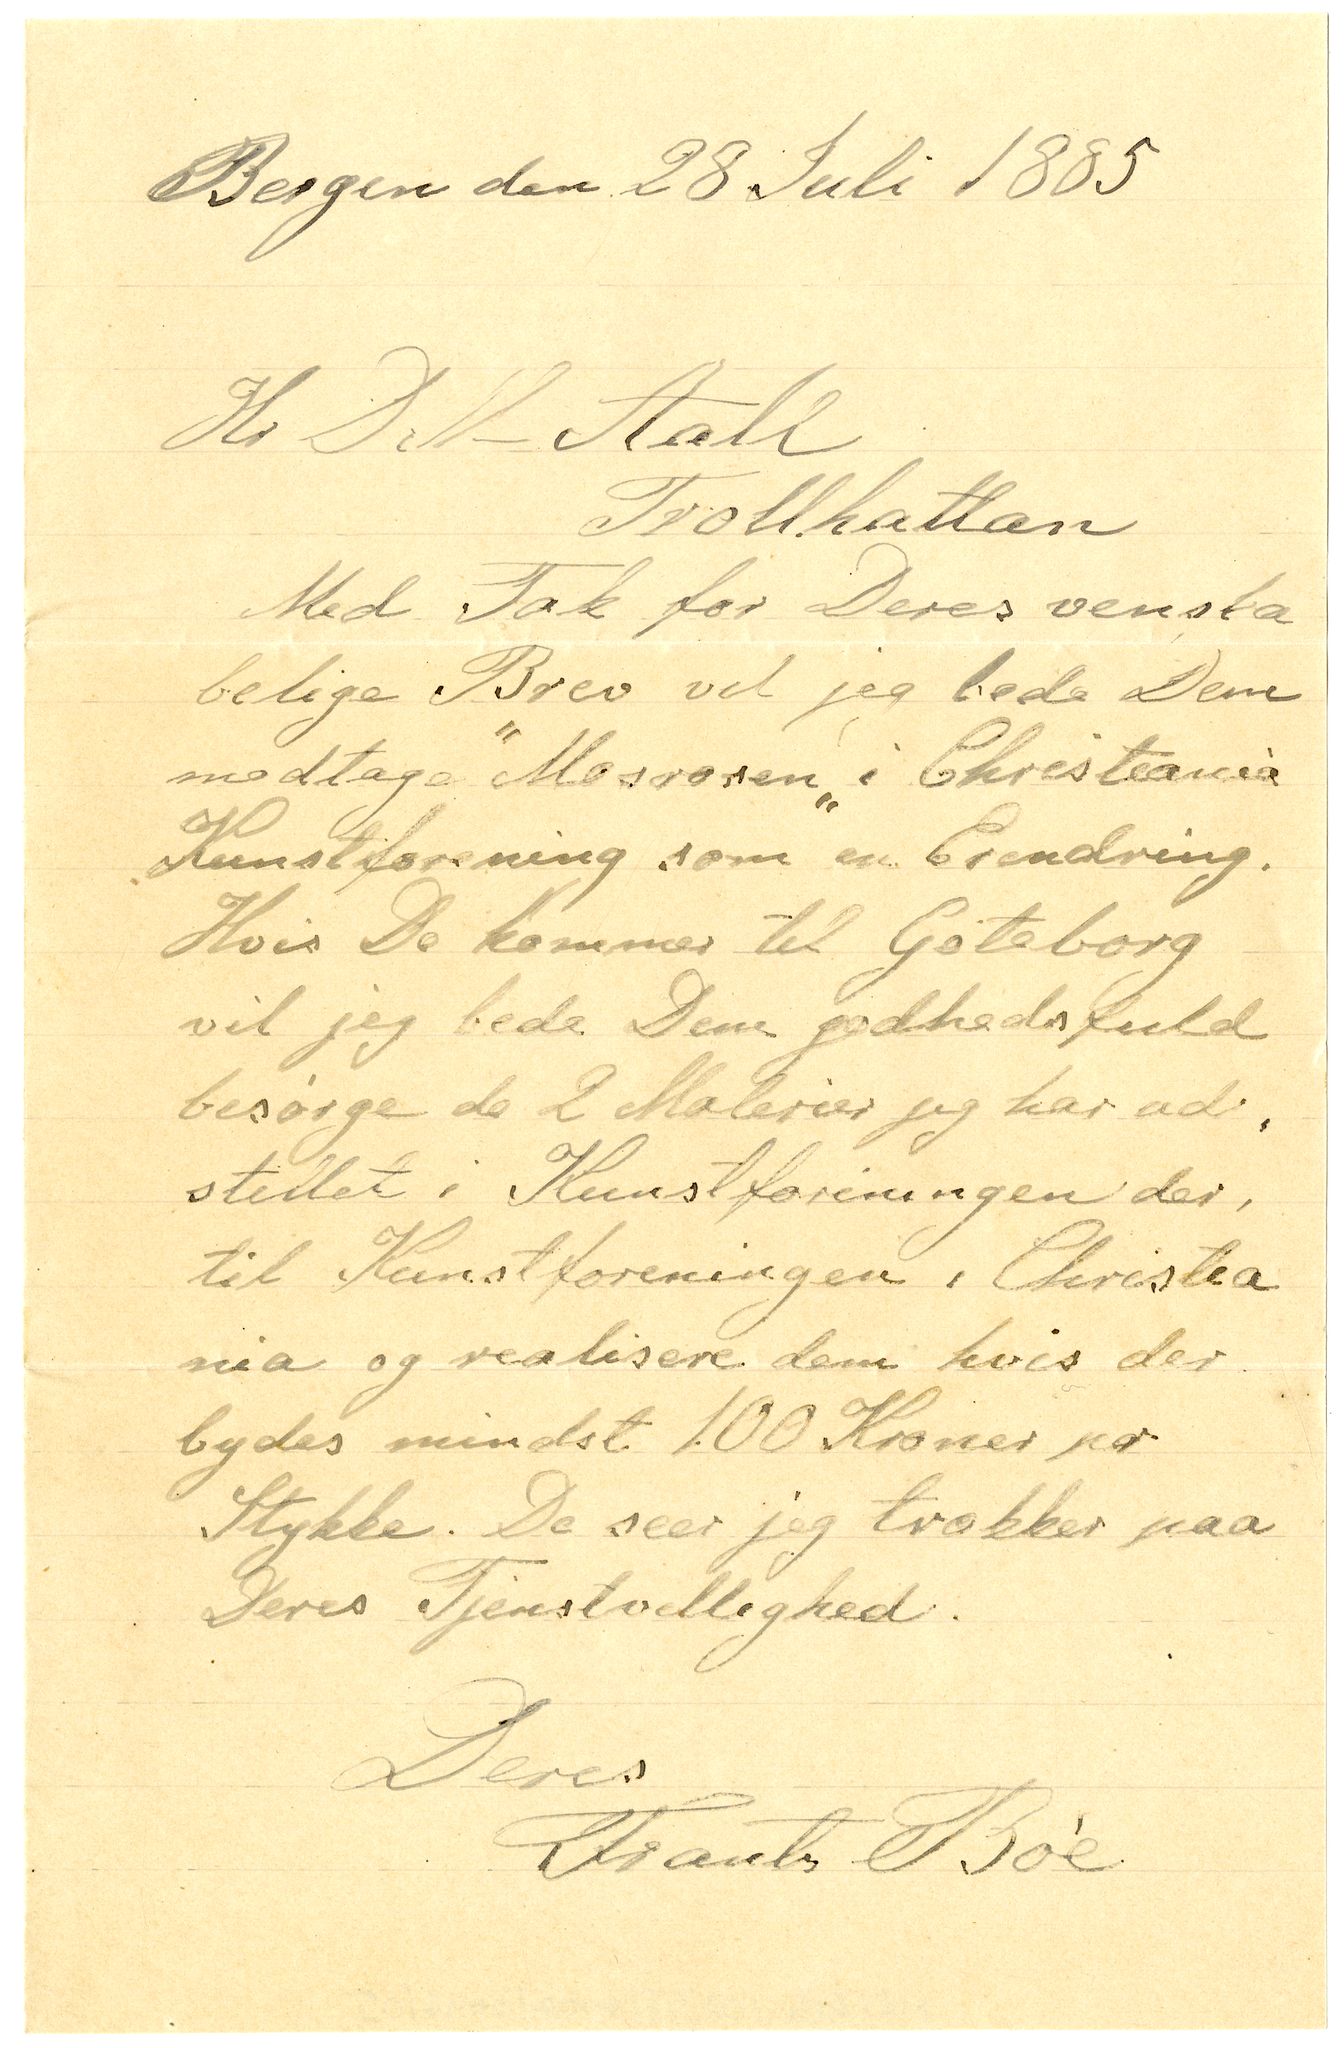 Bergen den 28 Juli 1885
Hr D. M Stall
Trollhattan
Med Tak for Deres venska
belige Brev vil jeg bede Dem
modtage "Mosrosen" i Christiania
Kunstforening som en Erendring.
Hvis De kommer til Göteborg
vil jeg bede Dem godhedsfuld
besörge de 2 Malerier jeg har ud,
stillet i Kunstforeningen der,
til Kunstforeningen i Christia
nia og realisere dem hvis der
bydes mindst 100 Kroner pr
Stykke. De seer jeg trækker paa
Deres Tjenstvillighed.
Deres
Frants Böe